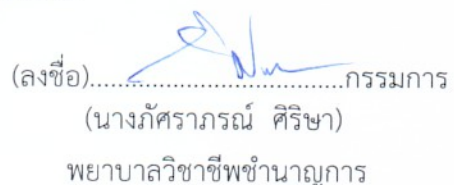 (ลงชื่อ)........................................กรรมการ
(นางภัศราภรณ์ ศิริษา)
พยาบาลวิชาชีพชำนาญการ